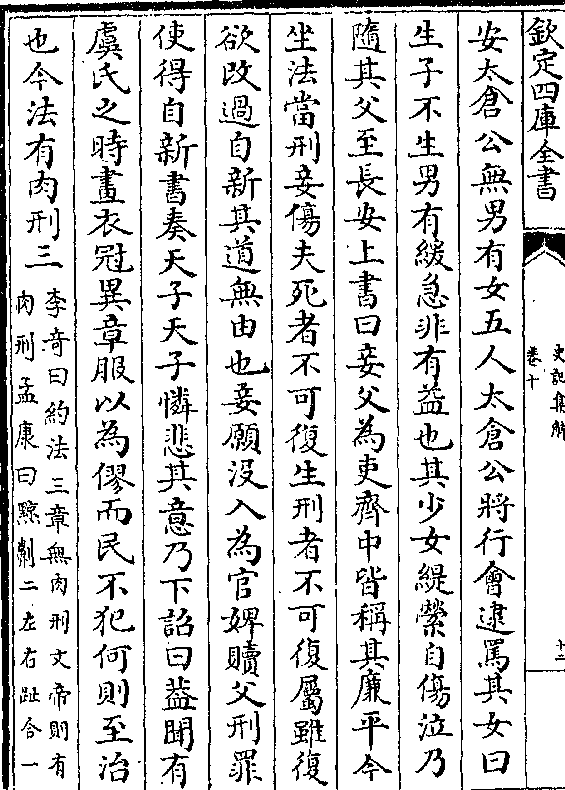 欽定四庫全書
史記集解
卷十
十二
安太倉公無男有女五人太倉公將行會逮罵其女曰
生子不生男有緩急非有益也其少女緹縈自傷泣乃
隨其父至長安上書曰妾父為吏齊中皆稱其廉平今
坐法當刑妾傷夫死者不可復生刑者不可復屬雖復
欲改過自新其道無由也妾願沒入為官婢贖父刑罪
使得自新書奏天子天子憐悲其意乃下詔曰益聞有
虞氏之時畫衣冠異章服以為僇而民不犯何則至治
也今法有肉刑三
李奇曰約法三章無肉刑文帝則有
肉刑孟康曰黥劓二左右趾合一